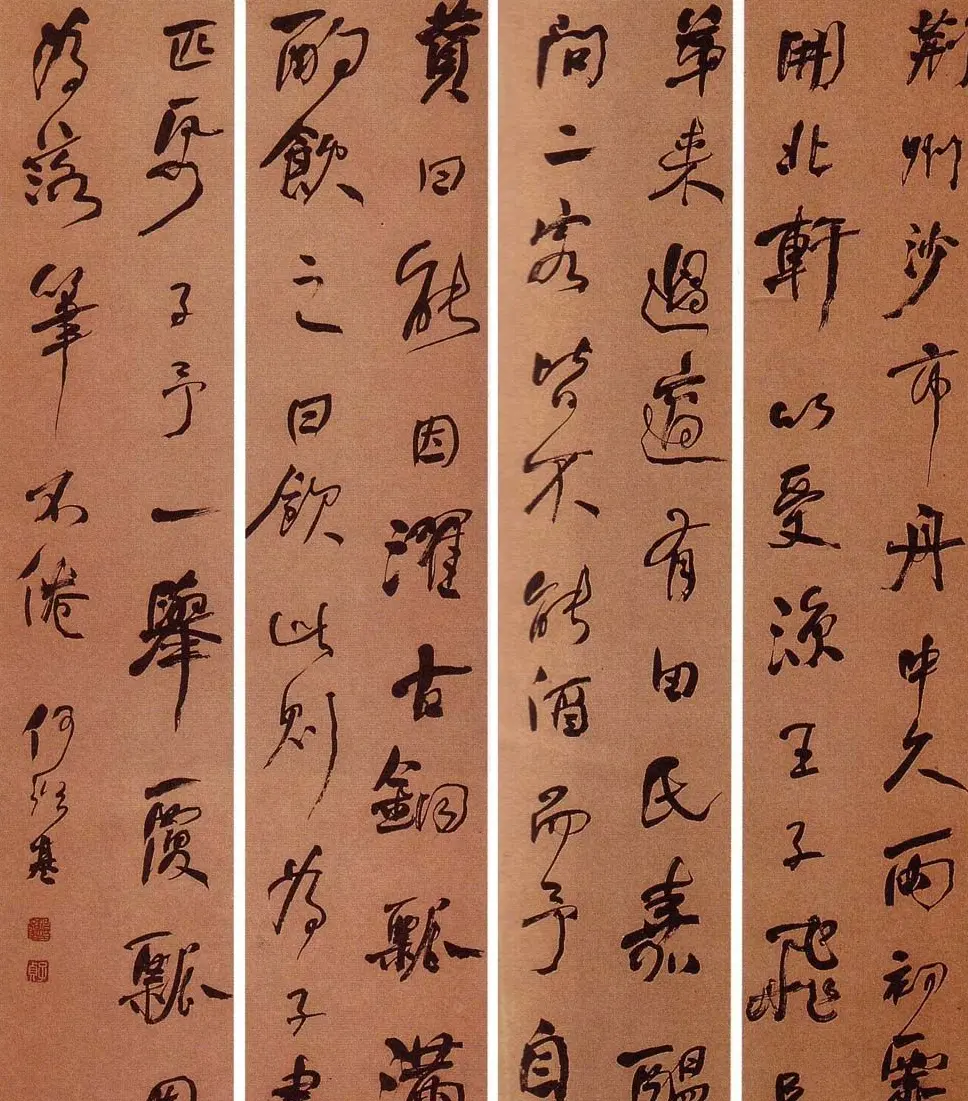 荊州沙市舟中久雨初霽
開北軒以受涼王子飛兄
弟來過適有田氏嘉醖
問二客皆不能酒而予自
贊曰能因濯古銅瓢滿
酌飲之曰飲此則為子書
匹子予一舉覆瓢因
為落筆不倦
何紹基